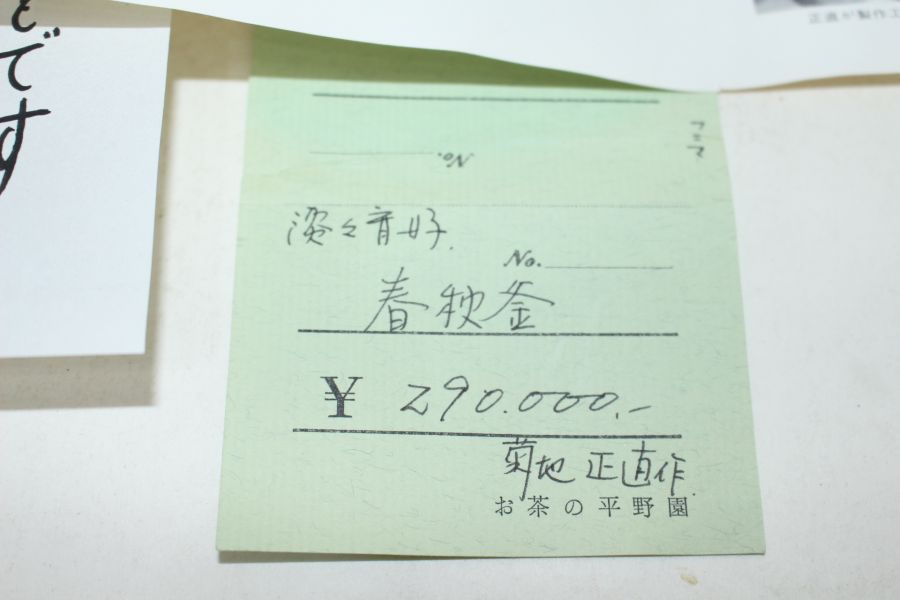 どです
正直が製作工
フミマ
No.
淡々斎好
No.
春秋釜
¥ 290.000.-
菊地 正直作
お茶の平野園